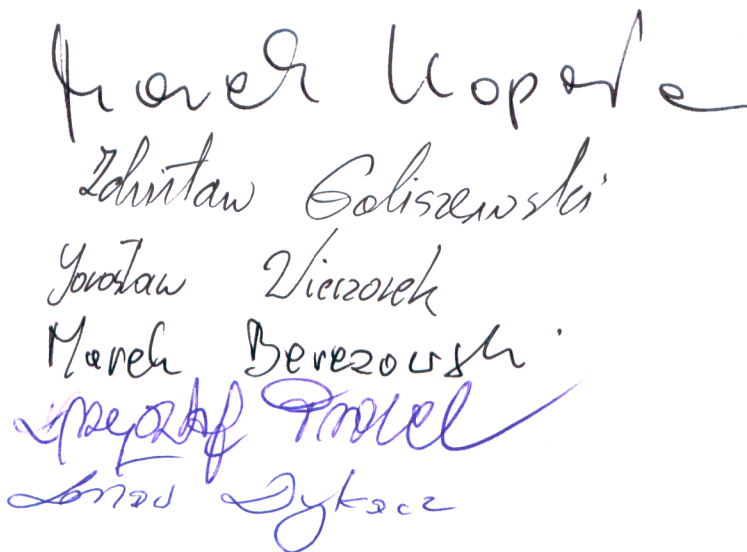 Marek Kopera
Zdzisław Goliszewski
Jarosław Wieczorek
Marek Berezowski
Krzysztof
Dykacz